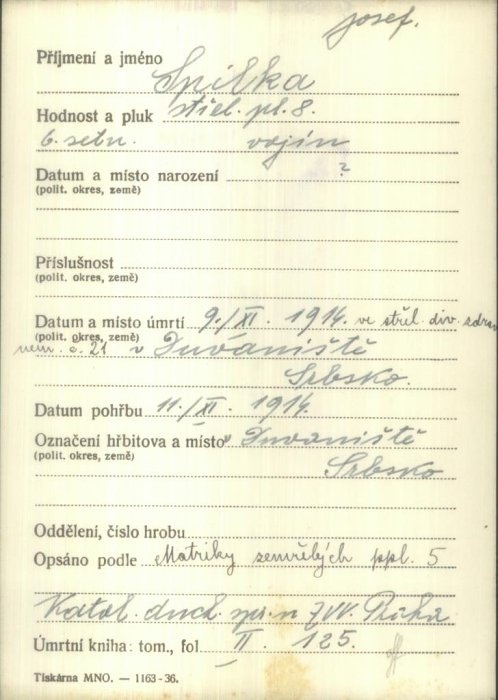 Josef.
Příjmení a jméno Spilka
Hodnost a pluk střel. pl. 8.
6. setn. vojín
Datum a místo narození ?
(polit. okres, země)
Příslušnost
(polit. okres, země)
Datum a místo úmrtí 9./XI. 1914. ve střel. div. zdrav
(polit. okres, země)
nem. č. 21 v Duvaniště
Srbsko.
Datum pohřbu 11./XI. 1914.
Označení hřbitova a místo Duvaniště
(polit. okres, země)
Srbsko
Oddělení, číslo hrobu
Opsáno podle Matriky zemřelých ppl. 5
Katol. duch. spr. ZVV. Praha
Úmrtní kniha: tom., fol II. 125.
Tiskárna MNO. — 1163-36.